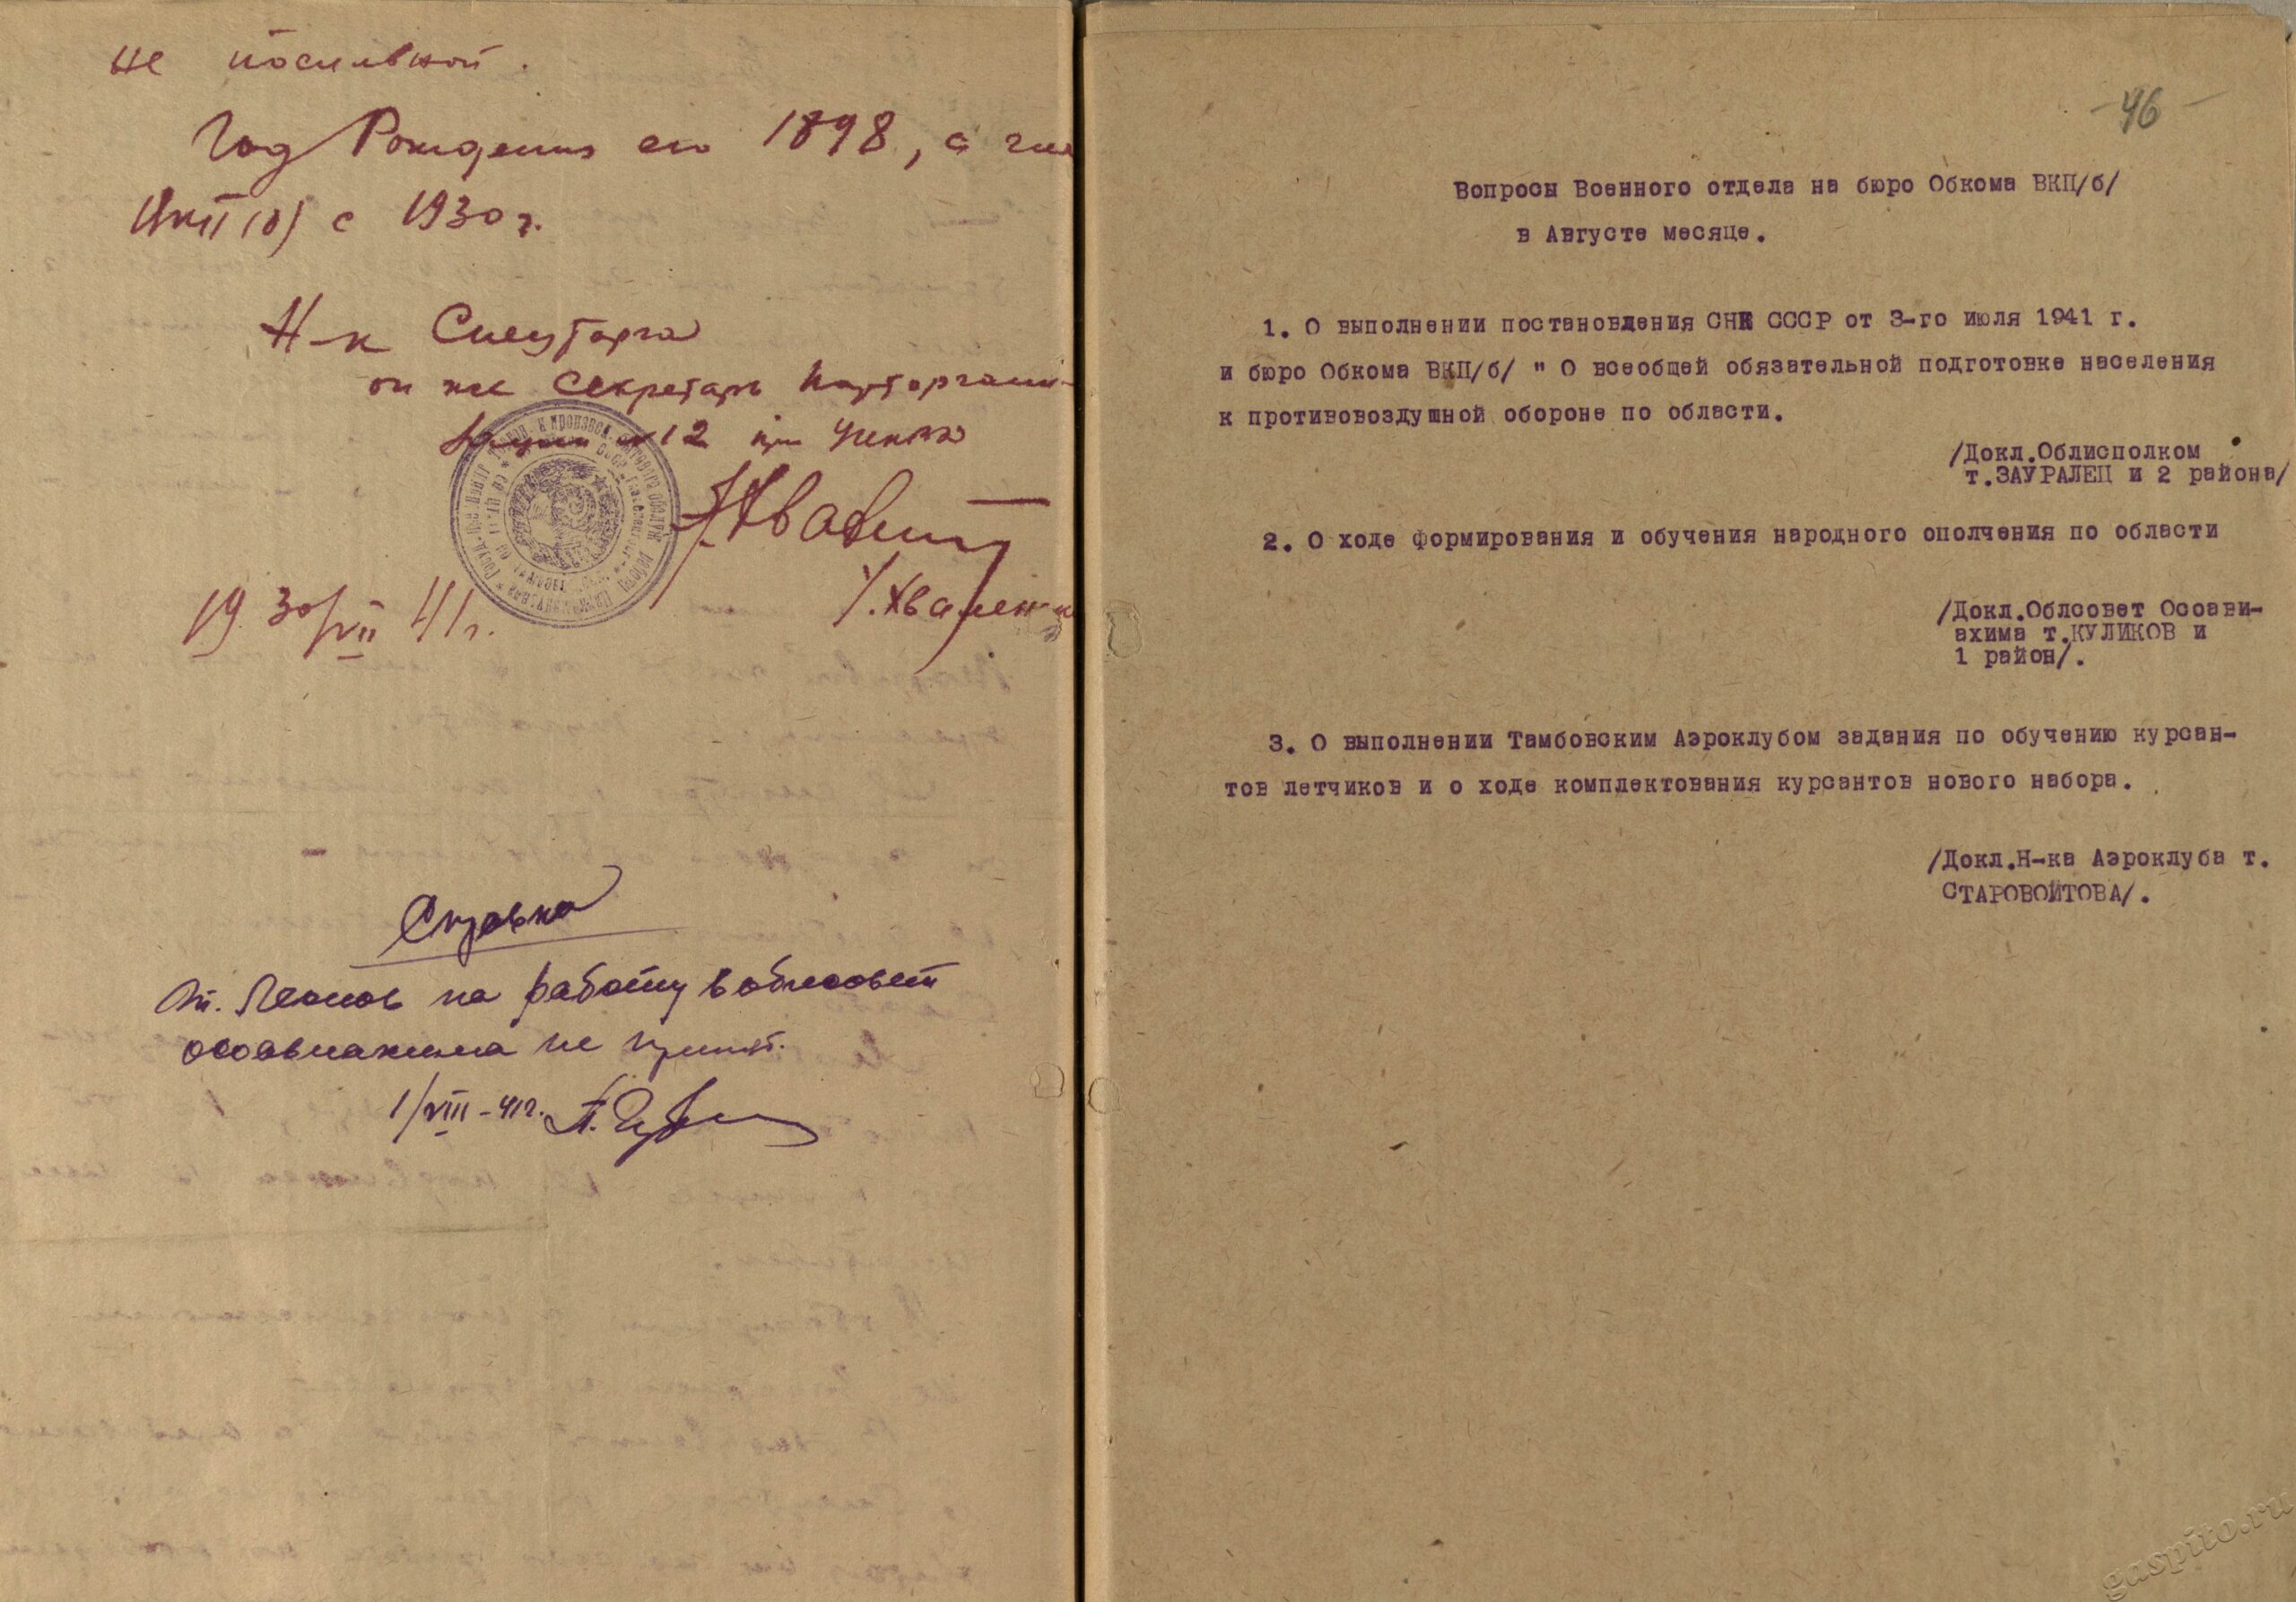 не посильной.
Год Рождения его 1898, а чле
ВКП(б) с 1930 г.
Н-к Спецторга
он же Секретарь парторгани-
зации № 12 при
Хвален
19 30/VII 41 г.
Справка
т. Леонов на работу в облсовет
осоавиахима не принят.
1/VIII-41г.
-46-
Вопросы Военного отдела на бюро Обкома ВКП/б/
в Августе месяце.
1. О выполнении постановления СНК СССР от 3-го июля 1941 г.
и бюро Обкома ВКП/б/ " О всеобщей обязательной подготовке населения
к противовоздушной обороне по области.
/Докл.Облисполком
т.ЗАУРАЛЕЦ и 2 района/
2. О ходе формирования и обучения народного ополчения по области
/Докл.Облсовет Осоави-
ахима т.КУЛИКОВ и
1 район/.
3. О выполнении Тамбовским Аэроклубом задания по обучению курсан-
тов летчиков и о ходе комплектования курсантов нового набора.
/Докл.Н-ка Аэроклуба т.
СТАРОВОЙТОВА/.
gaspito.ru